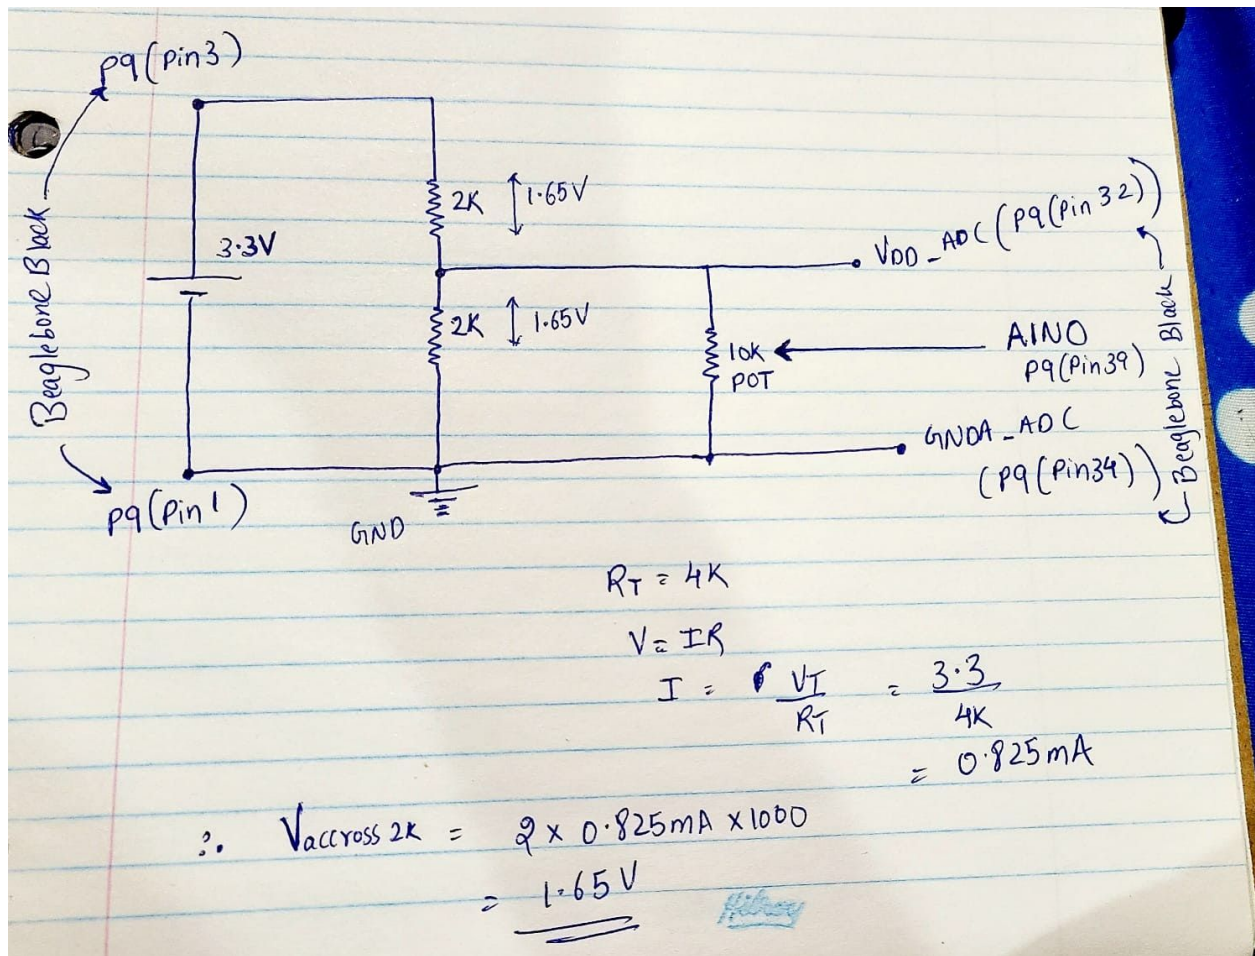 P9(Pin3)
Beaglebone Black
3.3V
2K
1.65V
2K
1.65V
P9(Pin1)
GND
VDD_ADC(P9(Pin32))
10K
POT
AIN0
P9(Pin39)
GNDA_ADC
(P9(Pin34))
Beaglebone Black
RT = 4K
V = IR
I = VI / RT = 3.3 / 4K
= 0.825mA
∴ Vaccross 2K = 2 x 0.825mA x 1000
= 1.65V